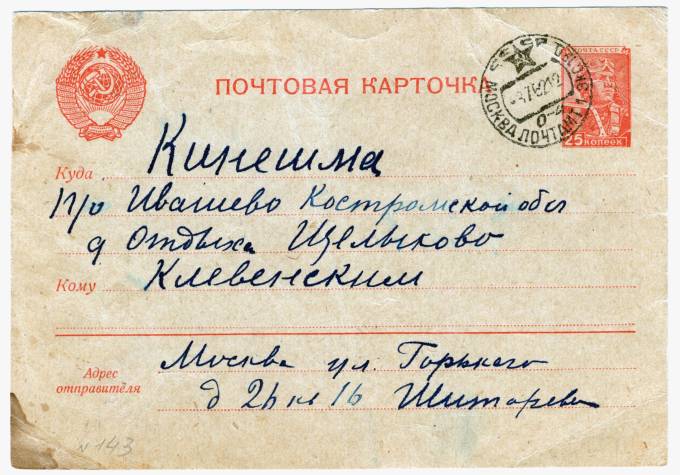 ПОЧТОВАЯ КАРТОЧКА
ПОЧТА СССР
МОСКВА ПОЧТАМТ 1
25 КОПЕЕК
Куда Кинешма
п/о Ивашево Костромской обл
д Отдыха Щелыково
Кому Клевенским
Адрес отправителя
Москва ул. Горького
д 26 кв 16
N 143